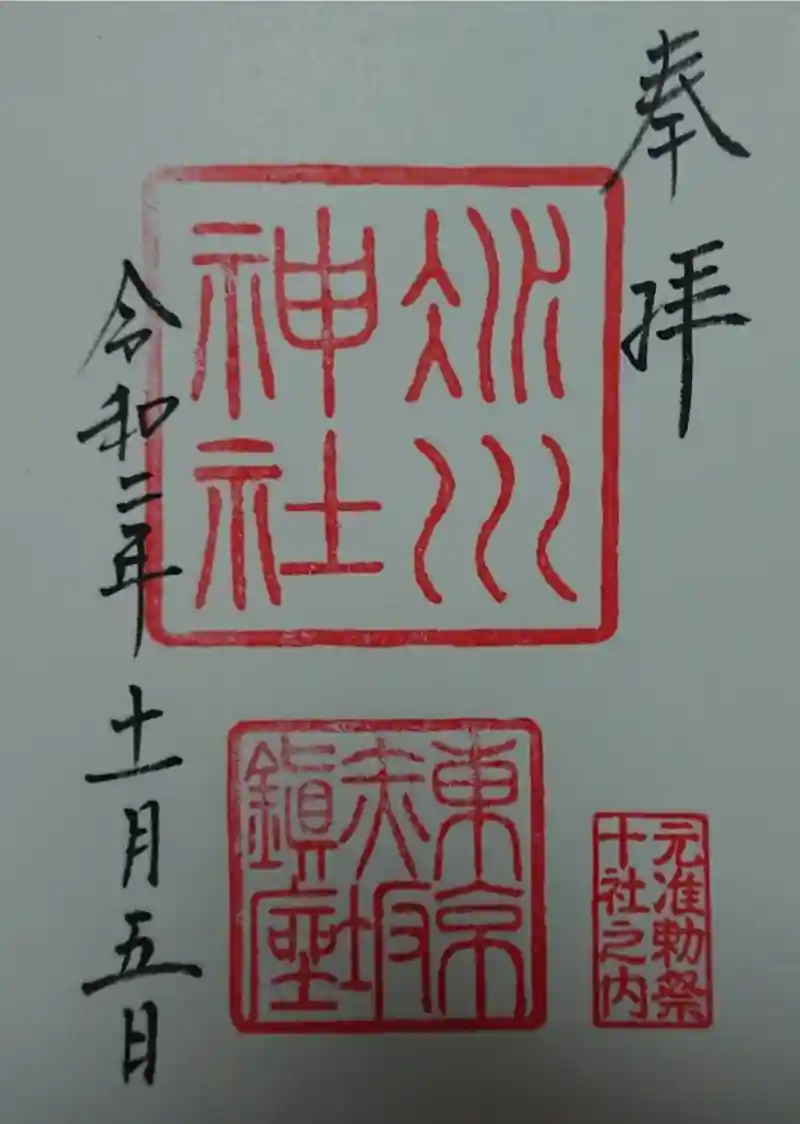 奉拝
元准勅祭
十社之内
冰川
神社
東京
赤坂
鎭座
令和二年十一月五日